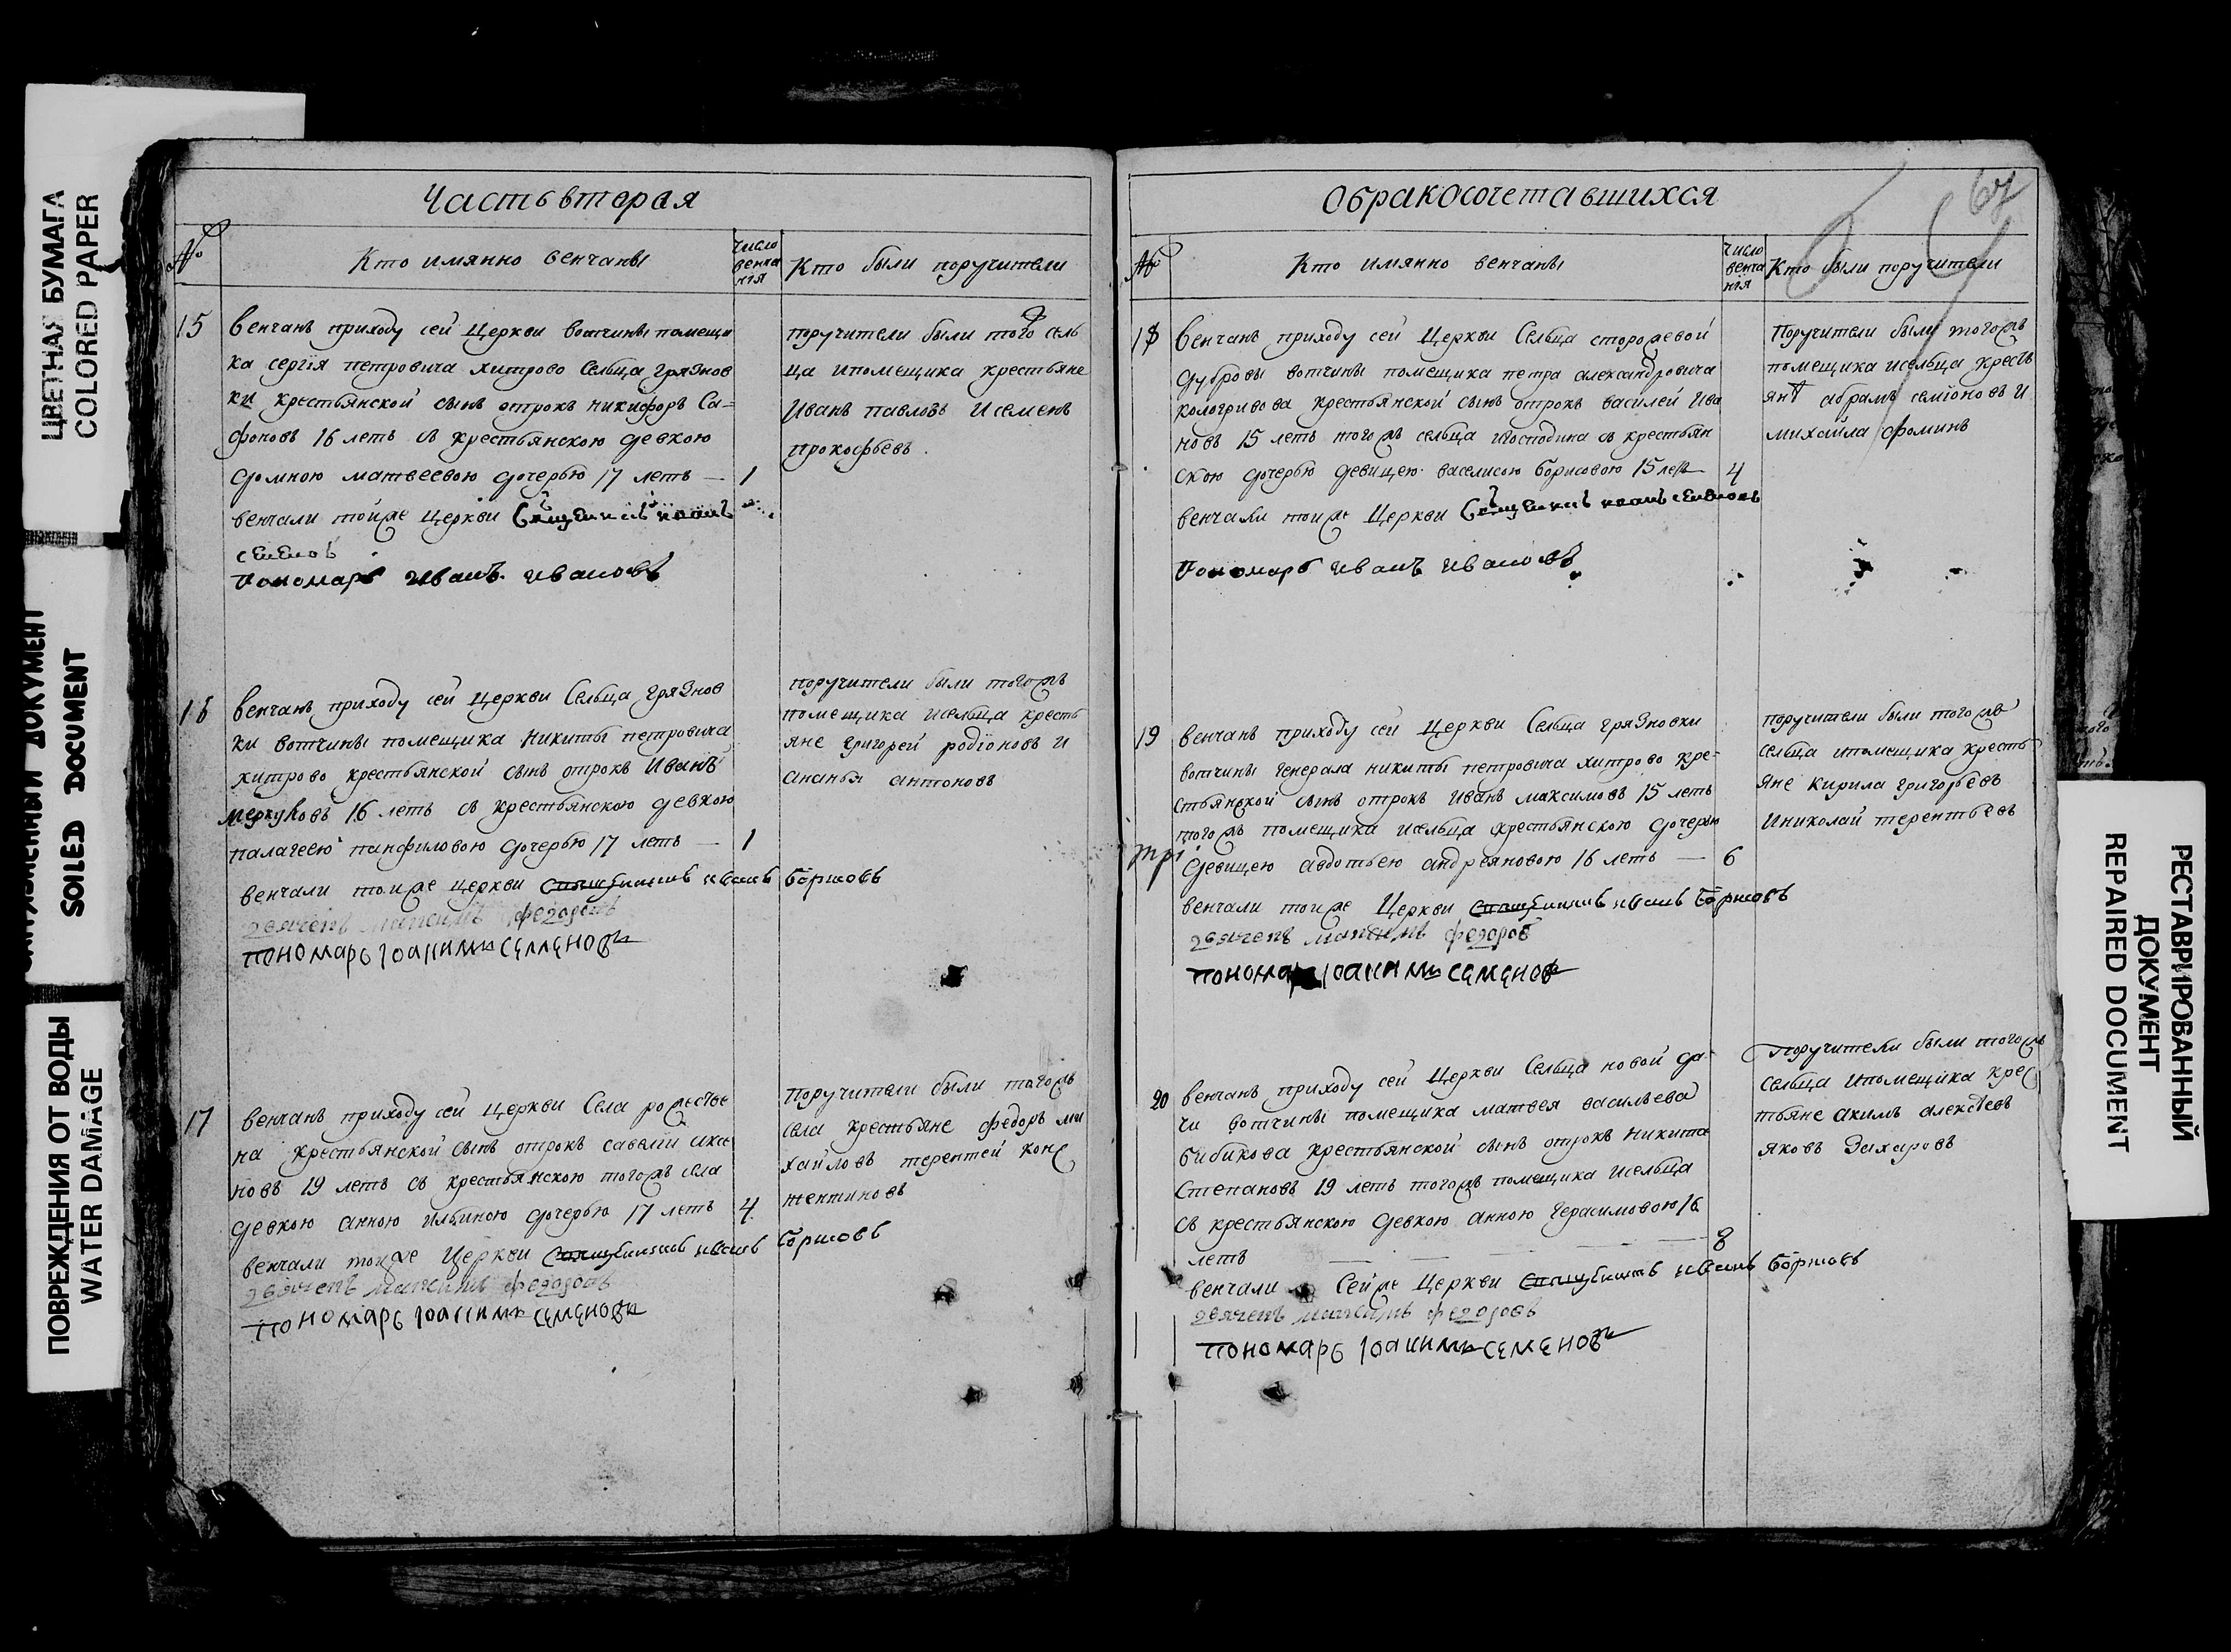 ЦВЕТНАЯ БУМАГА
COLORED PAPER
ДОКУМЕНТ
SOILED DOCUMENT
ПОВРЕЖДЕНИЯ ОТ ВОДЫ
WATER DAMAGE
Часть вторая
№
Кто имянно венчаны
число
венча
нiя
Кто были поручители
15
венчанъ приходу сей Церкви вотчины помещи
ка сергiя петровича хитрово Сельца грязнов
ки крестьянской сынъ отрокъ никифоръ Са=
фоновъ 16 летъ съ крестьянскою девкою
домною матвеевою дочерью 17 летъ — 1
венчали тойже Церкви Священникъ иванъ
семенов
Пономарь Иванъ Ивановъ
поручители были того сель
ца ипомещика крестьяне
Иванъ павловъ Исеменъ
прокофьевъ.
16
венчанъ приходу сей Церкви Сельца грязнов
ки вотчины помещика Никиты петровича
хитрово крестьянской сынъ отрокъ Иванъ
меркуловъ 16 летъ съ крестьянскою девкою
палагеею панфиловою дочерью 17 летъ — 1
венчали тоиже церкви Священникъ иванъ Борисовъ
дьячекъ максимъ федоровъ
пономарь Iоакимъ семеновъ
поручители были тогожъ
помещика исельца кресть
яне григорей родiоновъ И
Ананья антоновъ
17
венчанъ приходу сей Церкви Села рожестве
на крестьянской сынъ отрокъ савелiи
новъ 19 летъ съ крестьянскою тогожъ села
девкою анною ильиною дочерью 17 летъ 4
венчали тоиже Церкви Священникъ иванъ Борисовъ
дьячекъ максимъ федоровъ
пономарь Iоакимъ семеновъ
поручители были тогожъ
села крестьяне федоръ ми
хайловъ терентей конс
тентиновъ
Обракосочетавшихся
67
№
Кто имянно венчаны
число
венча
нiя
Кто были поручители
18
венчанъ приходу сей Церкви Сельца сторожевой
дубровы вотчины помещика петра александровича
кологривова крестьянской сынъ отрокъ василей Ива
новъ 15 летъ тогожъ сельца игосподина съ крестьян
скою дочерью девицею васелисою борисовою 15 летъ 4
венчали тоиже Церкви Священникъ иванъ семеновъ
Пономарь Иванъ Ивановъ
Поручители были тогожъ
помещика исельца кресть
янѣ абрамъ семiоновъ И
михайла фоминъ
19
венчанъ приходу сей Церкви Сельца грязновки
вотчины генерала никиты петровича хитрово кре=
стьянской сынъ отрокъ Иванъ максимовъ 15 летъ
тогожъ помещика исельца крестьянскою дочерью
девицею авдотьею андреяновою 16 летъ — 6
венчали тоиже Церкви Священникъ иванъ Борисовъ
дьячекъ максимъ федоровъ
пономарь Iоакимъ семеновъ
поручители были тогожъ
сельца ипомещика кресть
яне кирила григорьевъ
Иниколай терентьевъ
три
20
венчанъ приходу сей Церкви Сельца новой да=
чи вотчины помещика матвея васильева
бибикова крестьянской сынъ отрокъ никита
Степановъ 19 летъ тогожъ помещика исельца
съ крестьянскою девкою анною герасимовою 16
летъ — — — — 8
венчали Сейже Церкви Священникъ иванъ Борисовъ
дьячекъ максимъ федоровъ
пономарь Iоакимъ семеновъ
поручители были тогожъ
сельца ипомещика крес
тьяне акимъ алексѣевъ
яковъ Захаровъ
РЕСТАВРИРОВАННЫЙ
ДОКУМЕНТ
REPAIRED DOCUMENT